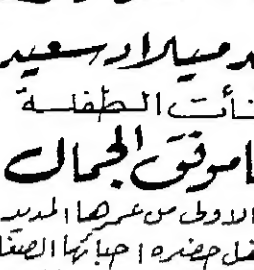 د ميلاد سعيد
نأت الطفلة
ا موفق الجمال
الاولى من عمرها المديد
فل حضره احبائها الصغا